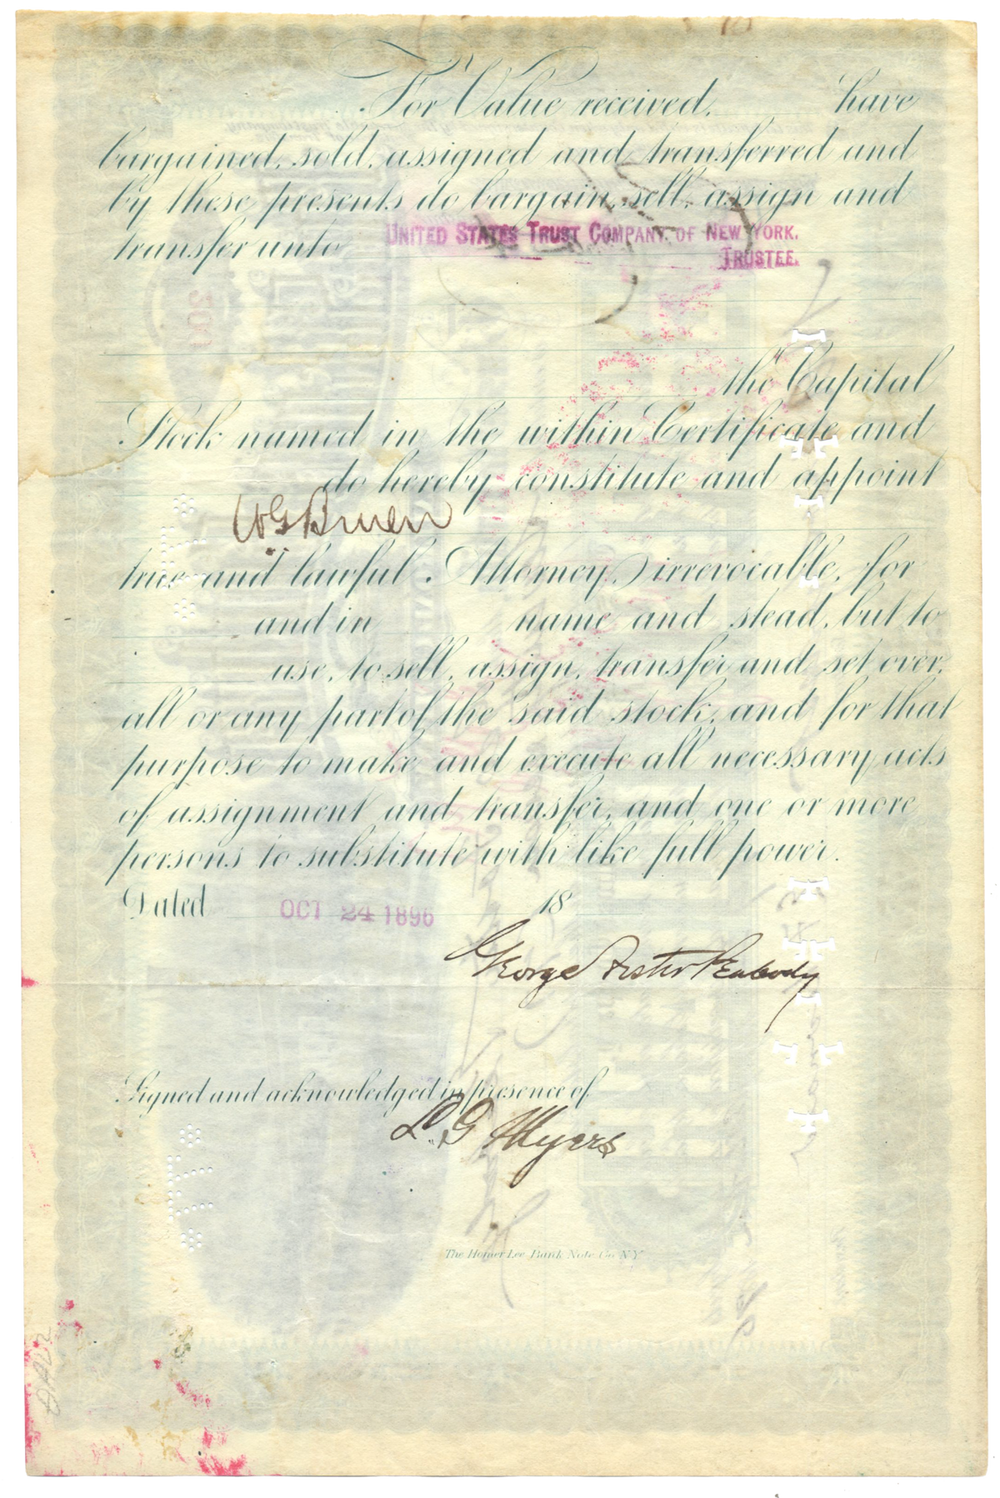 For Value received, have
bargained, sold, assigned and transferred and
by these presents do bargain, sell, assign and
transfer unto UNITED STATES TRUST COMPANY, OF NEW YORK,
TRUSTEE.
the Capital
Stock named in the within Certificate and
do hereby constitute and appoint
W G Bruen
true and lawful Attorney, irrevocable, for
and in name and stead, but to
use, to sell, assign, transfer and set over,
all or any part of the said stock, and for that
purpose to make and execute all necessary acts
of assignment and transfer, and one or more
persons to substitute with like full power.
Dated OCT 24 1896 18
George Foster Peabody
Signed and acknowledged in presence of
L G Myers
The Homer Lee Bank Note Co. N.Y.